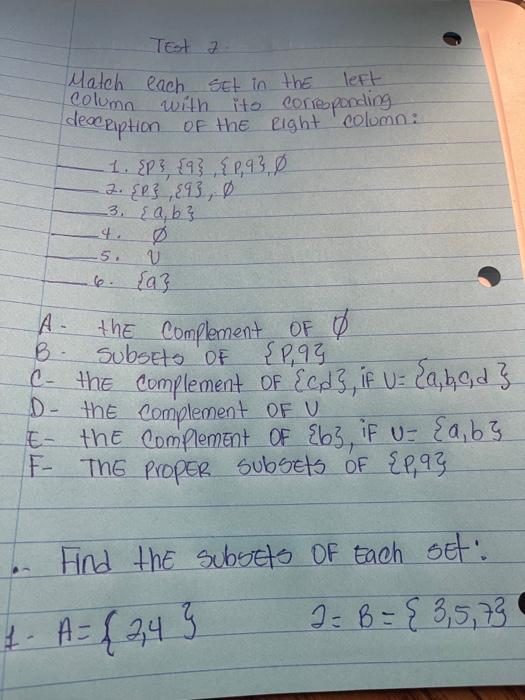 Test 2.
Match each set in the left
column with its corresponding
description of the right column:
____ 1. {p}, {q}, {p,q}, ∅
____ 2. {p}, {q}, ∅
____ 3. {a,b}
____ 4. ∅
____ 5. U
____ 6. {a}
A- the complement of ∅
B- subsets of {p,q}
C- the complement of {c,d}, if U= {a,b,c,d}
D- the complement of U
E- the complement of {b}, if U= {a,b}
F- The proper subsets of {p,q}
.- Find the subsets of each set:
1- A= {2,4} 2= B= {3,5,7}